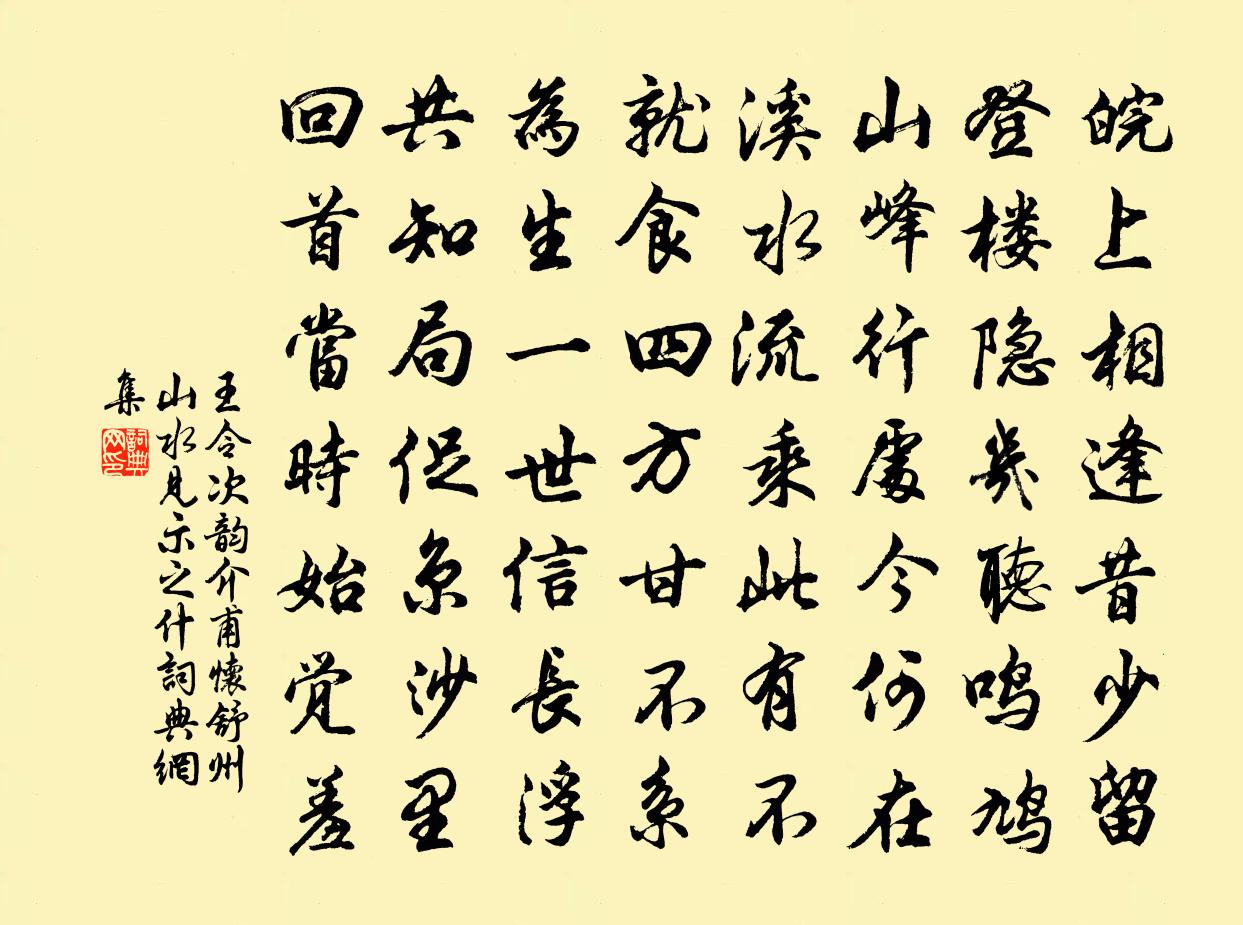 皖上相逢昔少留
登楼隐幾聽鸣鸠
山峰行處今何在
溪水流乘此有不
就食四方甘不系
為生一世信長浮
共知局促京沙里
回首當時始觉羞
王令次韵介甫懷舒州
山水見示之什詞典網
集
詞典
网印